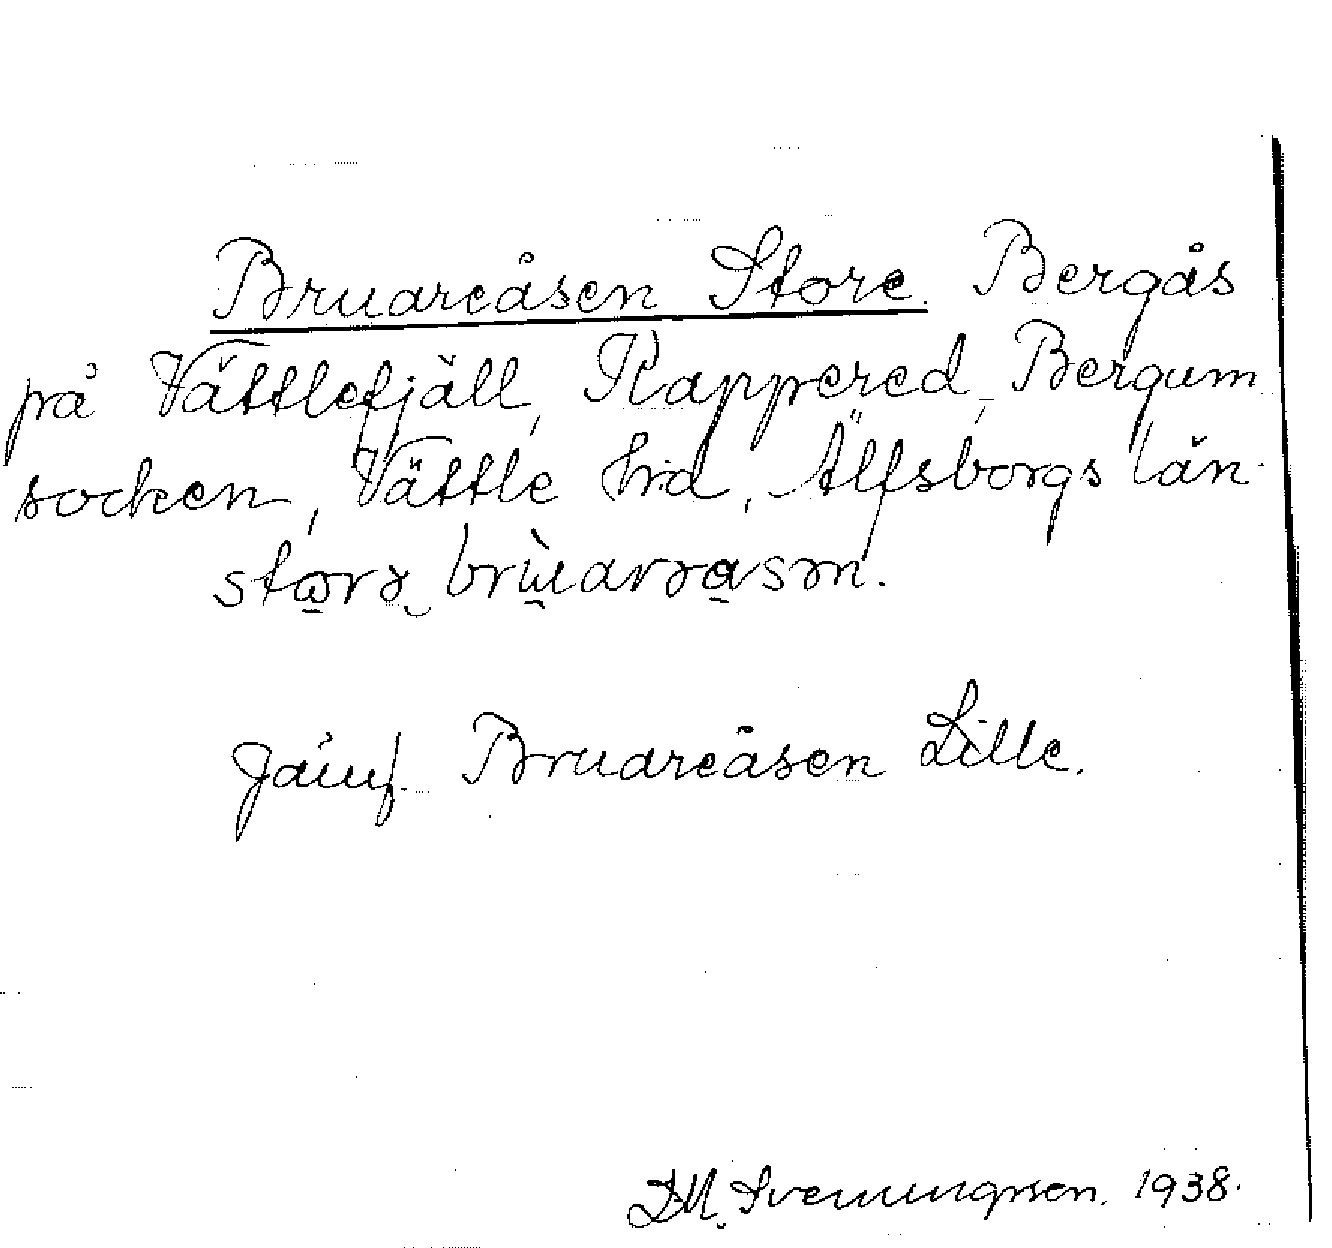 Bruareåsen Store. Bergås
på Vättlefjäll, Rappered, Bergum
socken, Vättle hd, Älfsborgs län.
Jämf. Bruareåsen Lille.
D.M. Svenungsson. 1938.